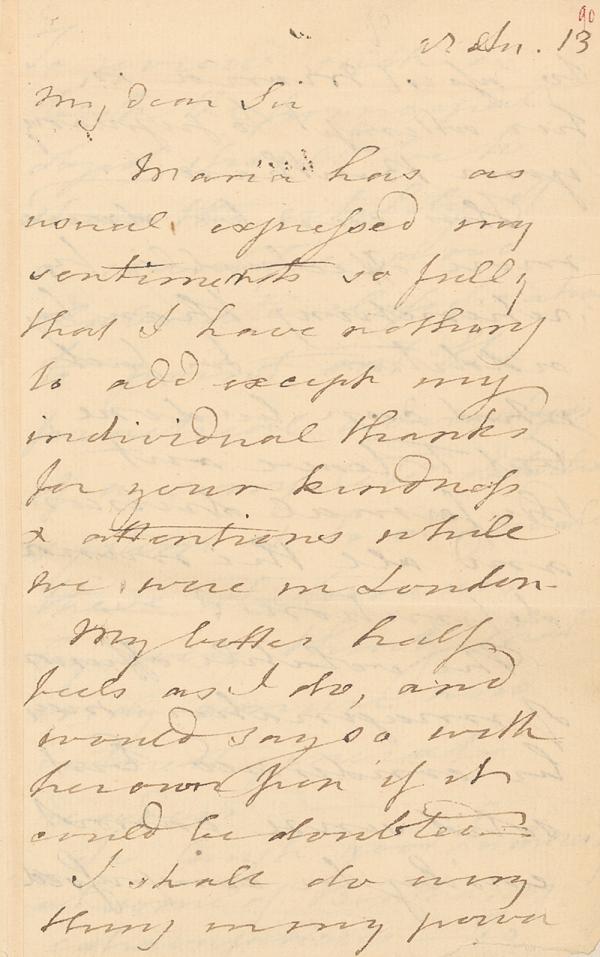 90
13
My dear Sir
Maria has as
usual expressed my
sentiments so fully
that I have nothing
to add except my
individual thanks
for your kindness
& attentions while
we were in London
My better half
feels as I do, and
would say so with
her own pen if it
could be doubted
I shall do every
thing in my power